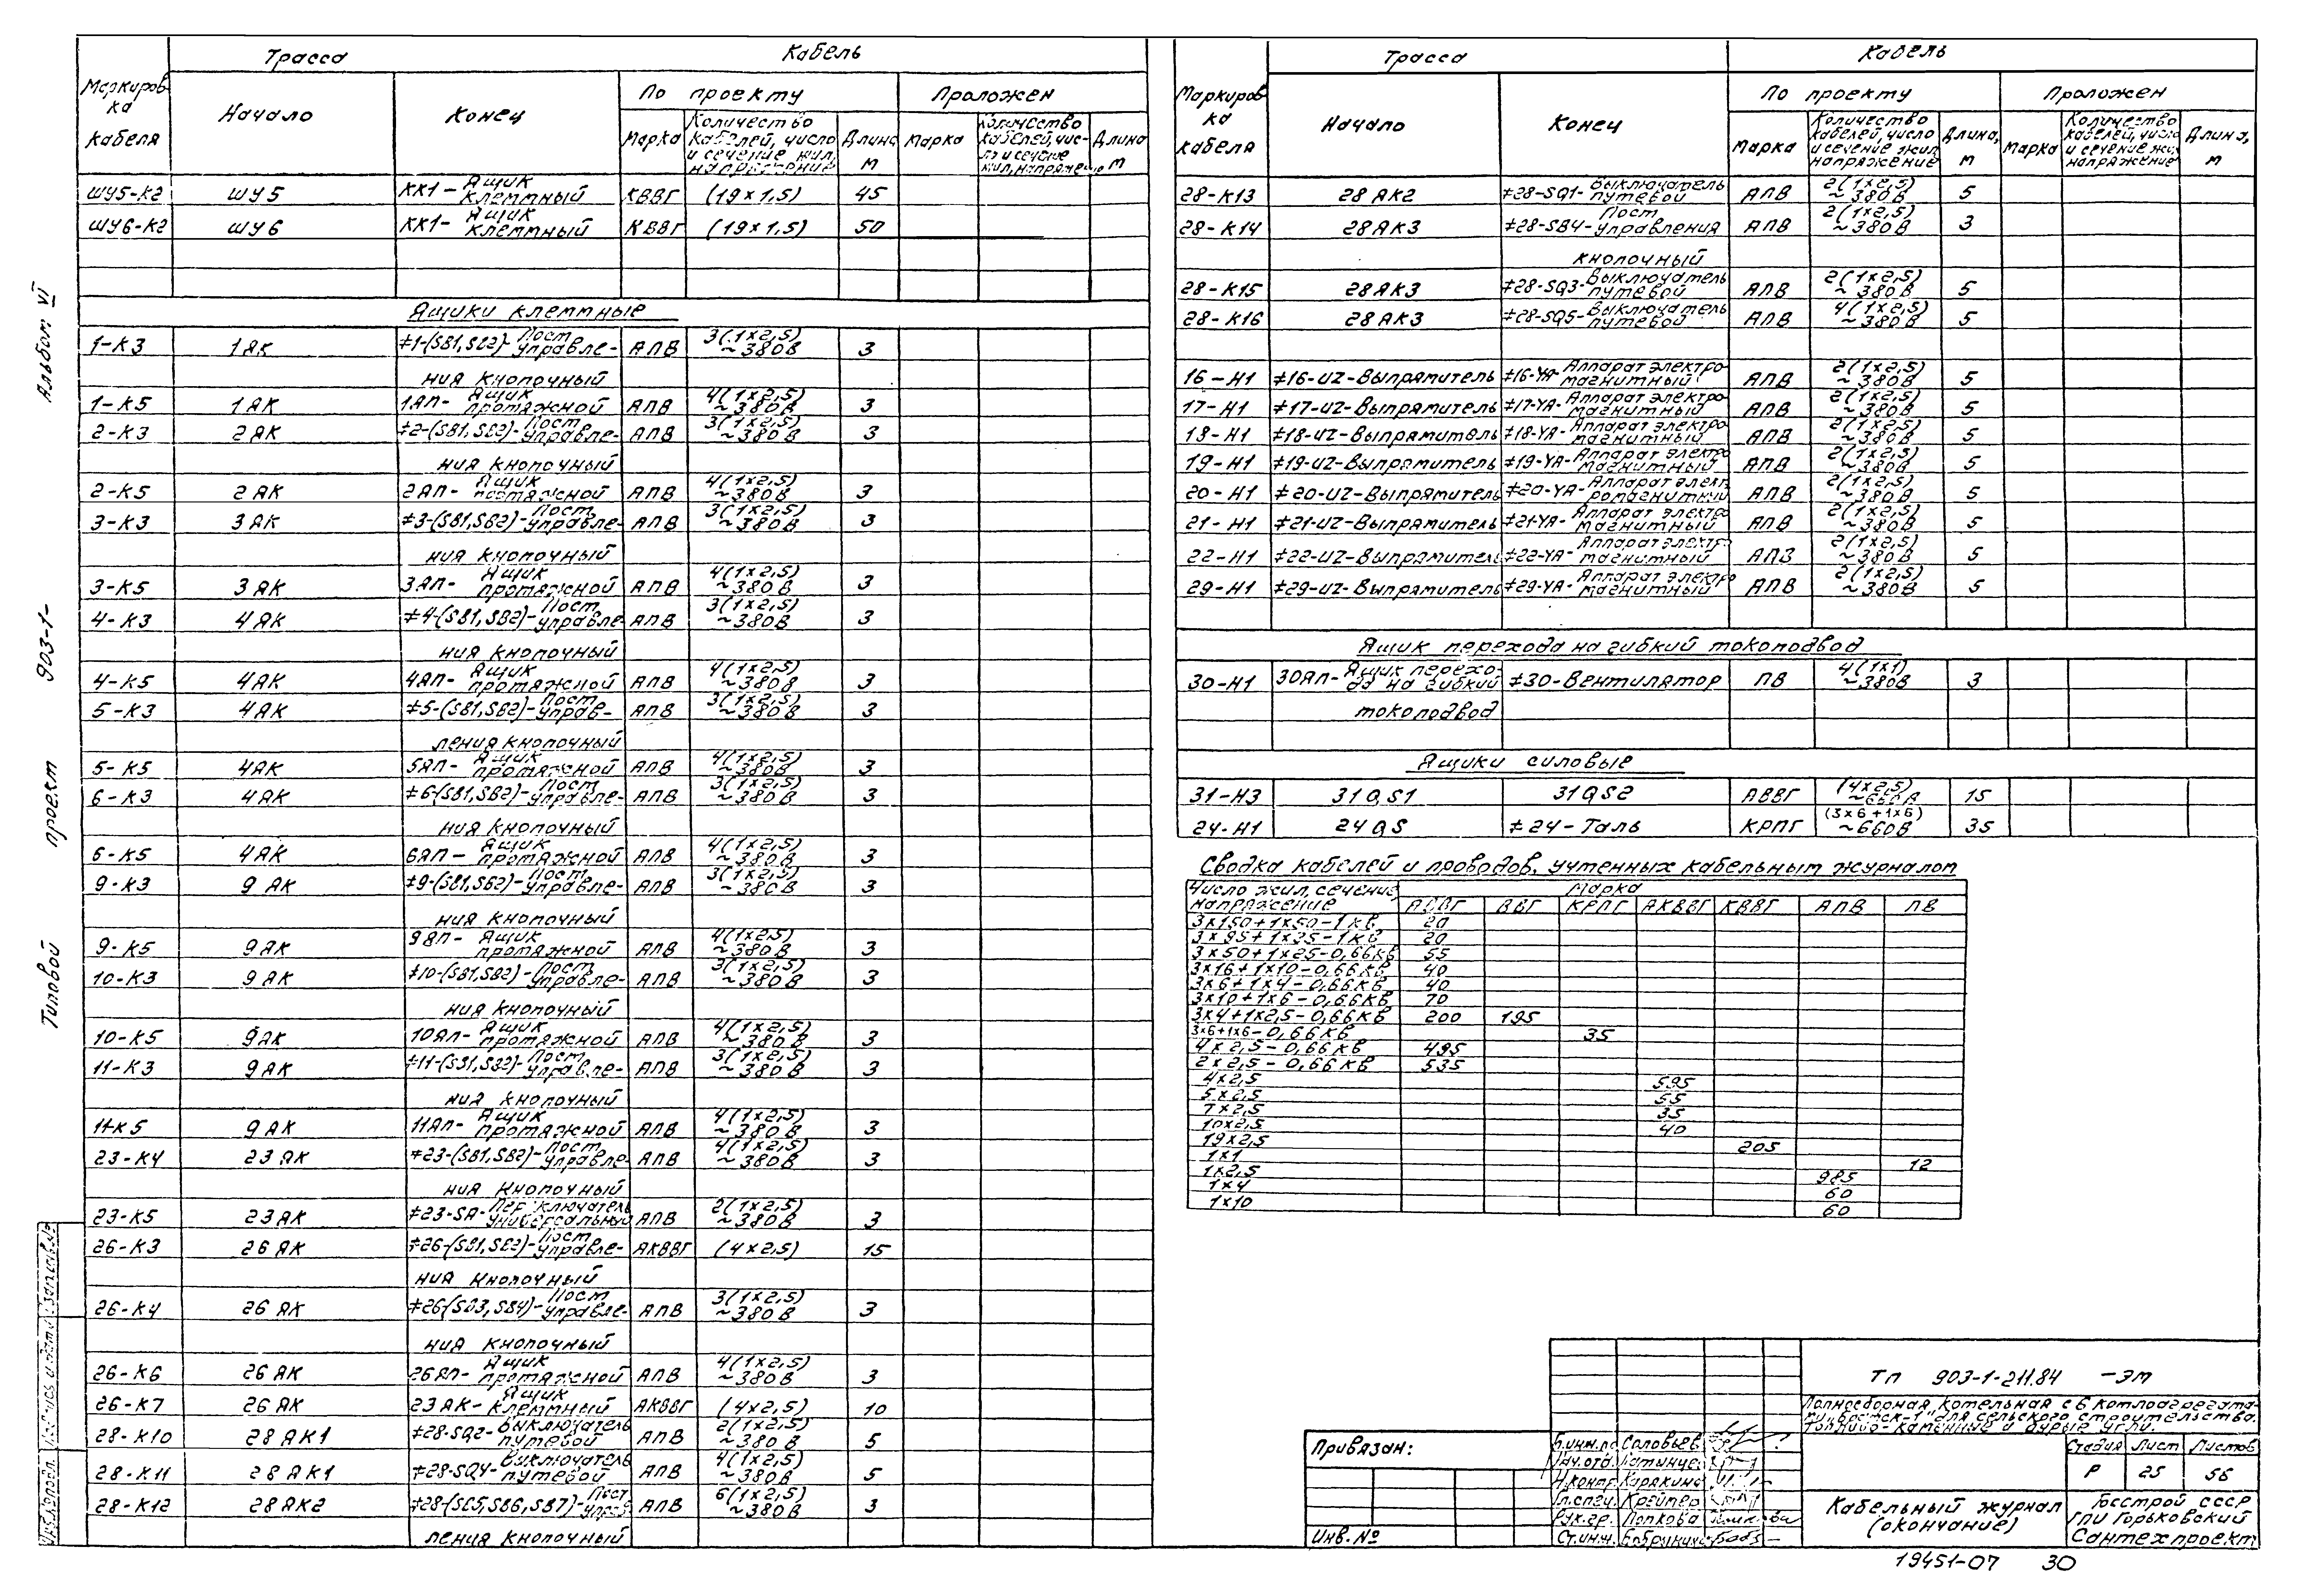 Альбом VI
Типовой проект 903-1-
Маркировка кабеля | Трасса | Кабель
Начало | Конец | По проекту | Проложен
Марка | Количество кабелей, число и сечение жил, напряжение | Длина м | Марка | Количество кабелей, число и сечение жил, напряжение | Длина м
ШУ5-К2 | ШУ5 | КК1- Ящик клеммный | КВВГ | (19×1,5) | 45
ШУ6-К2 | ШУ6 | КК1- Ящик клеммный | КВВГ | (19×1,5) | 50
Ящики клеммные
1-К3 | 1АК | ≠1-(SB1,SB2)- Пост управле- | АПВ | 3(1×2,5) ~380В | 3
ния кнопочный
1-К5 | 1ЯК | 1ЯП- Ящик протяжной | АПВ | 4(1×2,5) ~380В | 3
2-К3 | 2ЯК | ≠2-(SB1,SB2)- Пост управле- | АПВ | 3(1×2,5) ~380В | 3
ния кнопочный
2-К5 | 2ЯК | 2ЯП- Ящик протяжной | АПВ | 4(1×2,5) ~380В | 3
3-К3 | 3ЯК | ≠3-(SB1,SB2)- Пост управле- | АПВ | 3(1×2,5) ~380В | 3
ния кнопочный
3-К5 | 3ЯК | 3ЯП- Ящик протяжной | АПВ | 4(1×2,5) ~380В | 3
4-К3 | 4ЯК | ≠4-(SB1,SB2)- Пост управле- | АПВ | 3(1×2,5) ~380В | 3
ния кнопочный
4-К5 | 4ЯК | 4ЯП- Ящик протяжной | АПВ | 4(1×2,5) ~380В | 3
5-К3 | 4ЯК | ≠5-(SB1,SB2)- Пост управ- | АПВ | 3(1×2,5) ~380В | 3
ления кнопочный
5-К5 | 4ЯК | 5ЯП- Ящик протяжной | АПВ | 4(1×2,5) ~380В | 3
6-К3 | 4ЯК | ≠6-(SB1,SB2)- Пост управле- | АПВ | 3(1×2,5) ~380В | 3
ния кнопочный
6-К5 | 4ЯК | 6ЯП- Ящик протяжной | АПВ | 4(1×2,5) ~380В | 3
9-К3 | 9ЯК | ≠9-(SB1,SB2)- Пост управле- | АПВ | 3(1×2,5) ~380В | 3
ния кнопочный
9-К5 | 9ЯК | 9ЯП- Ящик протяжной | АПВ | 4(1×2,5) ~380В | 3
10-К3 | 9ЯК | ≠10-(SB1,SB2)- Пост управле- | АПВ | 3(1×2,5) ~380В | 3
ния кнопочный
10-К5 | 9ЯК | 10ЯП- Ящик протяжной | АПВ | 4(1×2,5) ~380В | 3
11-К3 | 9ЯК | ≠11-(SB1,SB2)- Пост управле- | АПВ | 3(1×2,5) ~380В | 3
ния кнопочный
11-К5 | 9ЯК | 11ЯП- Ящик протяжной | АПВ | 4(1×2,5) ~380В | 3
23-К4 | 23ЯК | ≠23-(SB1,SB2)- Пост управле- | АПВ | 4(1×2,5) ~380В | 3
ния кнопочный
23-К5 | 23ЯК | ≠23-SA- Переключатель универсальный | АПВ | 2(1×2,5) ~380В | 3
26-К3 | 26ЯК | ≠26-(SB1,SB2)- Пост управле- | АКВВГ | (4×2,5) | 15
ния кнопочный
26-К4 | 26ЯК | ≠26-(SB3,SB4)- Пост управле- | АПВ | 3(1×2,5) ~380В | 3
ния кнопочный
26-К6 | 26ЯК | 26ЯП- Ящик протяжной | АПВ | 4(1×2,5) ~380В | 3
26-К7 | 26ЯК | 23ЯК- Ящик клеммный | АКВВГ | (4×2,5) | 10
28-К10 | 28ЯК1 | ≠28-SQ2- Выключатель путевой | АПВ | 2(1×2,5) ~380В | 5
28-К11 | 28ЯК1 | ≠28-SQ4- Выключатель путевой | АПВ | 4(1×2,5) ~380В | 5
28-К12 | 28ЯК2 | ≠28-(SB5,SB6,SB7)- Пост управ- | АПВ | 6(1×2,5) ~380В | 3
ления кнопочный
Маркировка кабеля | Трасса | Кабель
Начало | Конец | По проекту | Проложен
Марка | Количество кабелей, число и сечение жил напряжение | Длина, м | Марка | Количество кабелей, число и сечение жил, напряжение | Длина, м
28-К13 | 28ЯК2 | ≠28-SQ1- Выключатель путевой | АПВ | 2(1×2,5) ~380В | 5
28-К14 | 28ЯК3 | ≠28-SB4- Пост управления | АПВ | 2(1×2,5) ~380В | 3
кнопочный
28-К15 | 28ЯК3 | ≠28-SQ3- Выключатель путевой | АПВ | 2(1×2,5) ~380В | 5
28-К16 | 28ЯК3 | ≠28-SQ5- Выключатель путевой | АПВ | 4(1×2,5) ~380В | 5
16-Н1 | ≠16-UZ-Выпрямитель | ≠16-YA- Аппарат электромагнитный | АПВ | 2(1×2,5) ~380В | 5
17-Н1 | ≠17-UZ-Выпрямитель | ≠17-YA- Аппарат электромагнитный | АПВ | 2(1×2,5) ~380В | 5
18-Н1 | ≠18-UZ-Выпрямитель | ≠18-YA- Аппарат электромагнитный | АПВ | 2(1×2,5) ~380В | 5
19-Н1 | ≠19-UZ-Выпрямитель | ≠19-YA- Аппарат электромагнитный | АПВ | 2(1×2,5) ~380В | 5
20-Н1 | ≠20-UZ-Выпрямитель | ≠20-YA- Аппарат электромагнитный | АПВ | 2(1×2,5) ~380В | 5
21-Н1 | ≠21-UZ-Выпрямитель | ≠21-YA- Аппарат электромагнитный | АПВ | 2(1×2,5) ~380В | 5
22-Н1 | ≠22-UZ-Выпрямитель | ≠22-YA- Аппарат электромагнитный | АПВ | 2(1×2,5) ~380В | 5
29-Н1 | ≠29-UZ-Выпрямитель | ≠29-YA- Аппарат электромагнитный | АПВ | 2(1×2,5) ~380В | 5
Ящик перехода на гибкий токоподвод
30-Н1 | 30ЯП- Ящик перехода на гибкий | ≠30-Вентилятор | ПВ | 4(1×1) ~380В | 3
токоподвод
Ящики силовые
31-Н3 | 31QS1 | 31QS2 | АВВГ | (4×2,5) ~660В | 15
24-Н1 | 24QS | ≠24-Таль | КРПГ | (3×6+1×6) ~660В | 35
Сводка кабелей и проводов, учтенных кабельным журналом
Число жил, сечение, напряжение | Марка
АВВГ | ВВГ | КРПГ | АКВВГ | КВВГ | АПВ | ПВ
3×150+1×50-1кВ | 20
3×95+1×35-1кВ | 20
3×50+1×25-0,66кВ | 55
3×16+1×10-0,66кВ | 40
3×6+1×4-0,66кВ | 40
3×10+1×6-0,66кВ | 70
3×4+1×2,5-0,66кВ | 200 | 195
3×6+1×6-0,66кВ | 35
4×2,5-0,66кВ | 495
2×2,5-0,66кВ | 535
4×2,5 | 595
5×2,5 | 55
7×2,5 | 35
10×2,5 | 40
19×2,5 | 205
1×1 | 12
1×2,5 | 985
1×4 | 60
1×10 | 60
ТП 903-1-211.84 -ЭМ
Полносборная котельная с 6 котлоагрегатами „Братск-1" для сельского строительства.
Топливо-каменные и бурые угли.
Стадия | Лист | Листов
Р | 25 | 56
Кабельный журнал (окончание)
Госстрой СССР
ГПИ Горьковский
Сантехпроект
Привязан:
Инв.№
Соловьев
Нач.отд.
Н.контр. Карякина
Гл.спец. Крейтер
Рук.гр. Попкова
Ст.инж.
Инв.№ подл. | Подпись и дата | Взам.инв.№
19451-07 30